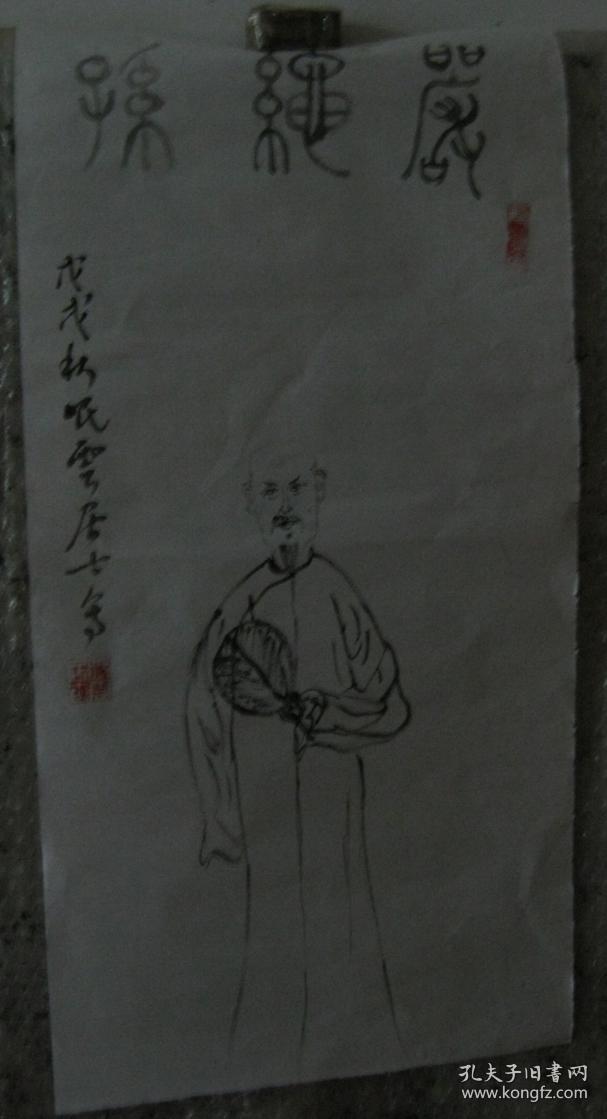 嚴繩孫
戊戌秋眠雲居士写
孔夫子旧書网
www.kongfz.com